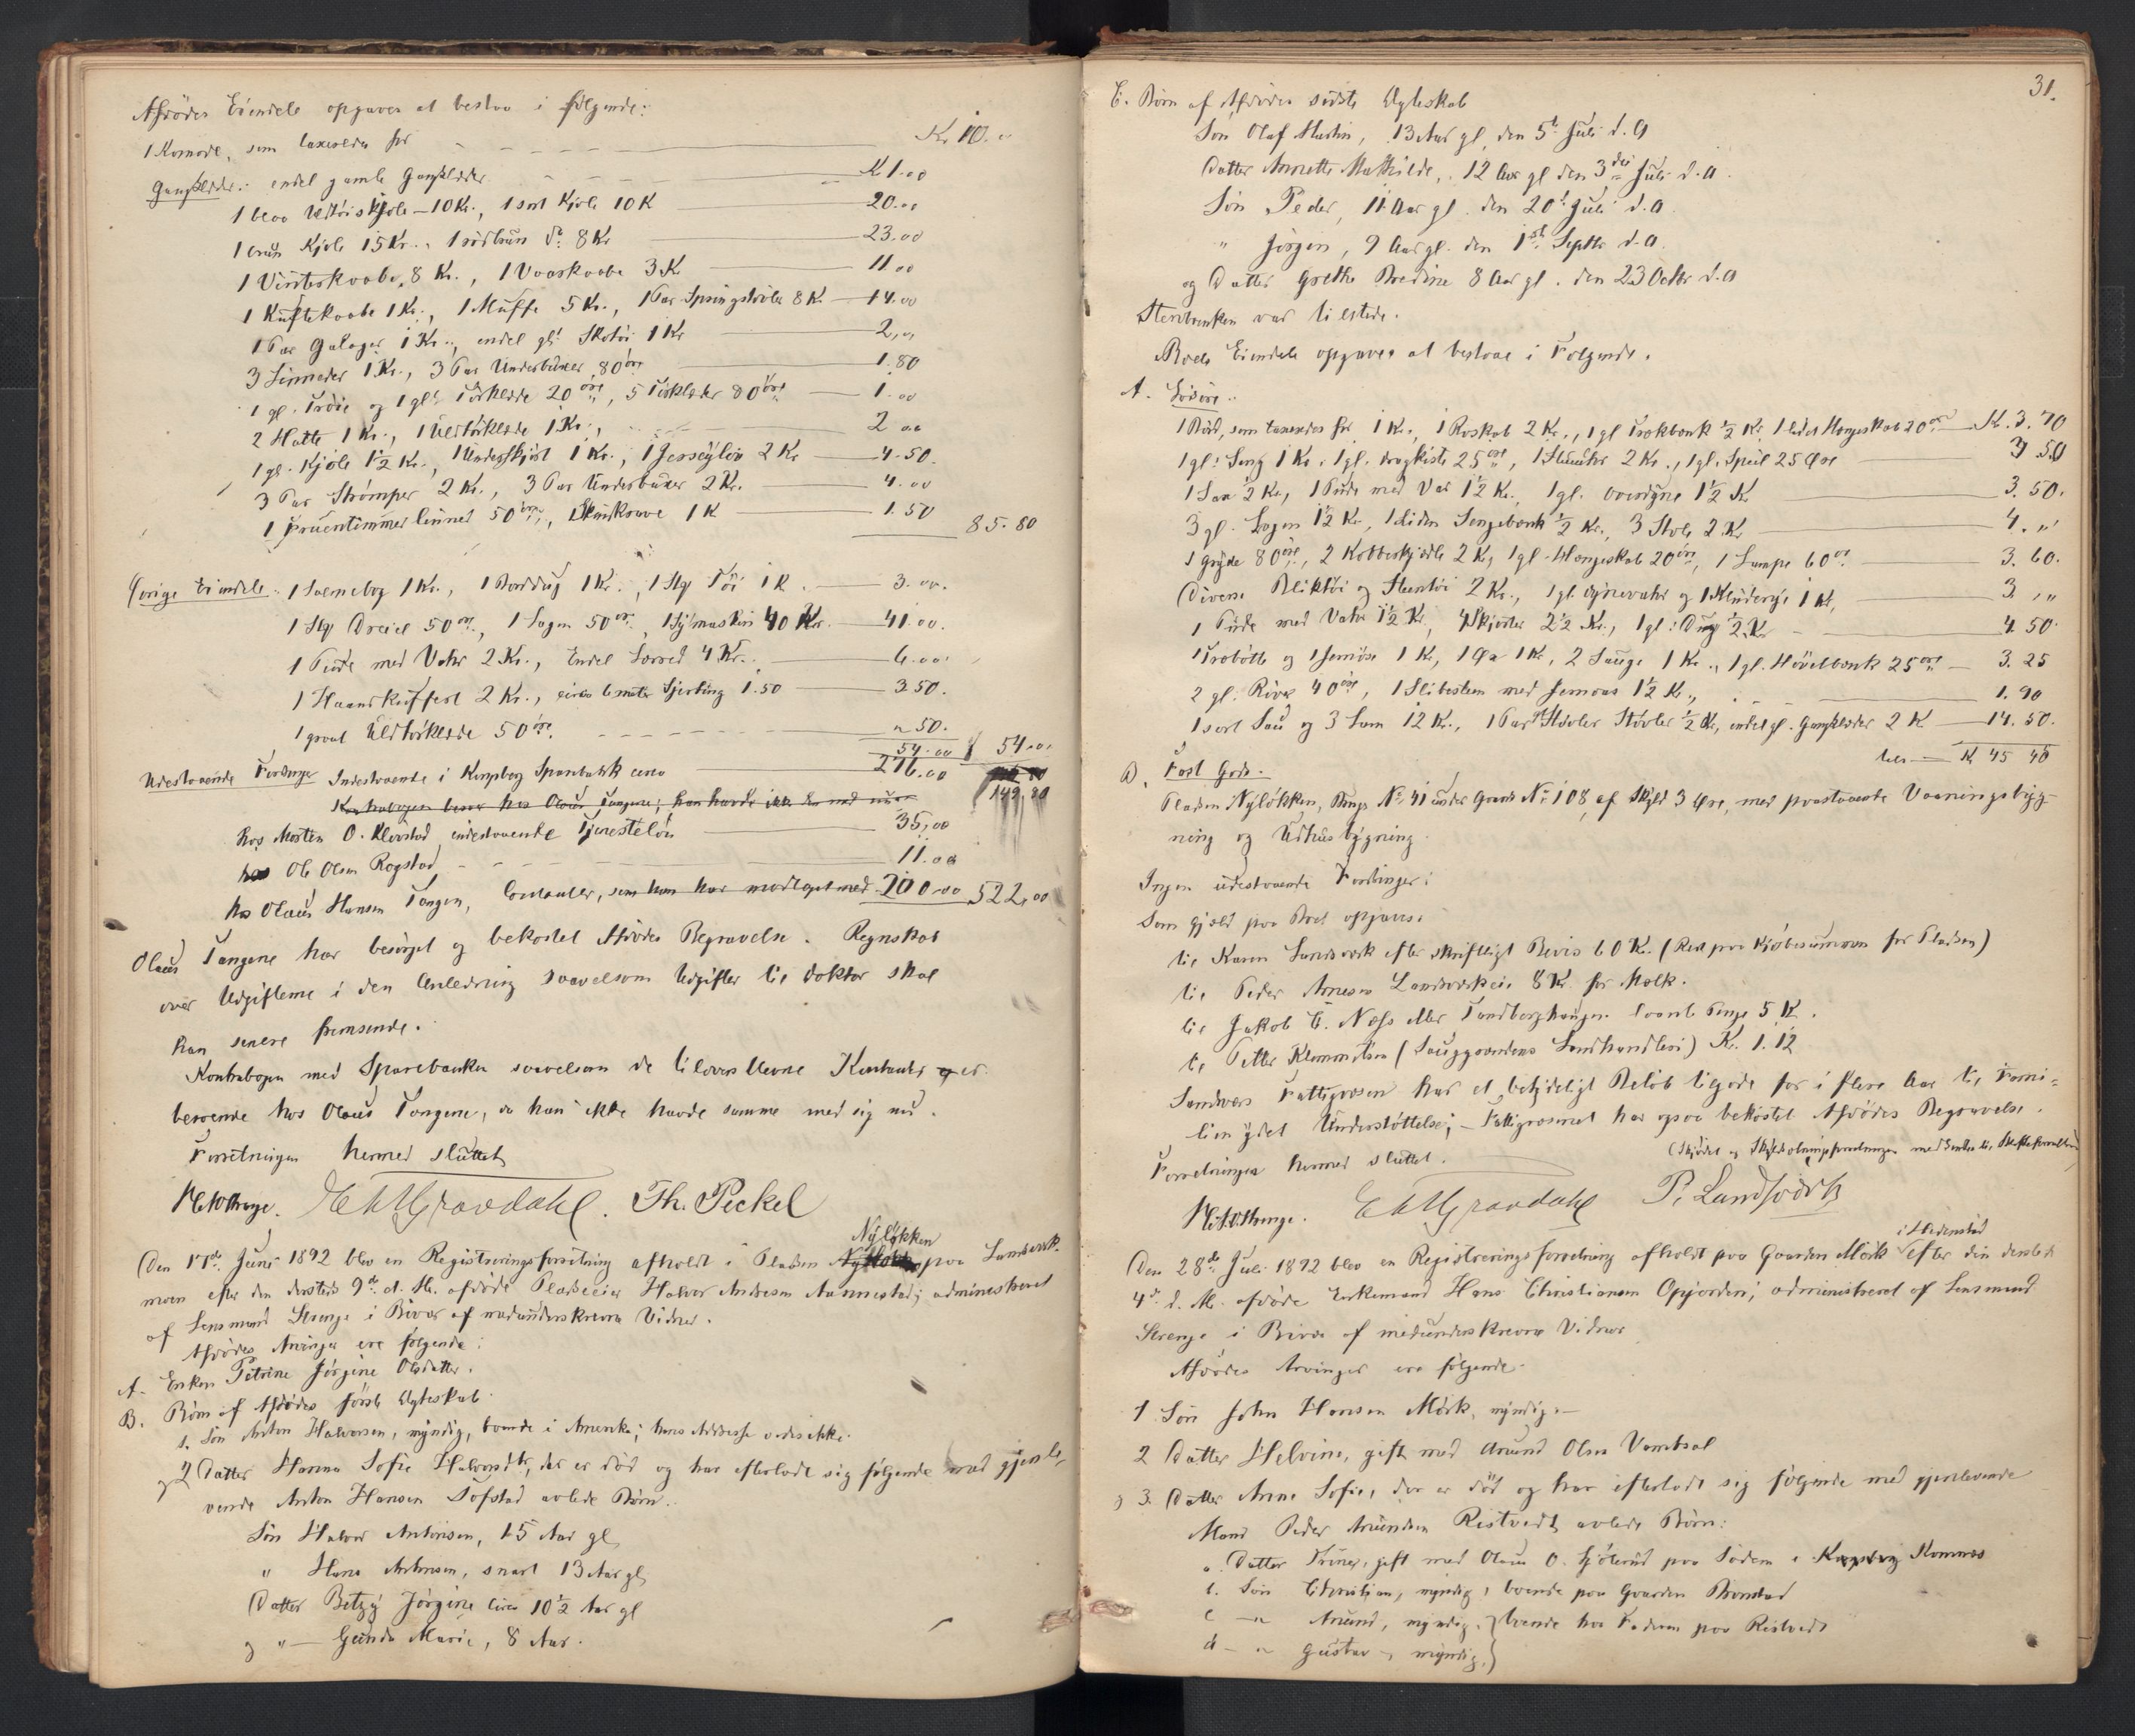 Afdödes Eiendele opgaves at bestaa i följende:
1 Komode, som taxeredes for Kr. 10.
Gangklæder: endel gamle Gangklæder K 1.00
1 blaa Uldtöiskjole 10 Kr., 1 sort Kjole 10 K 20.00
1 brun Kjole 15 Kr., 1 rödbrun do 8 Kr 23.00
1 Vinterkaabe 8 Kr., 1 Vaarkaabe 3 K 11.00
1 Kuftekaabe 1 Kr., 1 Muffe 5 Kr., 1 Par Springstövler 8 K. 14.00
1 Par Galoger 1 Kr., endel gl. Skotöi 1 Kr 2,00
3 Linneder 1 Kr., 3 Par Underbuxer 80 öre 1.80
1 gl. Tröie og 1 gl. Törklæde 20 öre, 5 Forklæder 80 öre 1.00
2 Hatte 1 Kr., 1 Uldtörklæde 1 Kr., 2 00
1 gl. Kjole 1½ Kr., 1 Underskjört 1 Kr., 1 Jerseyliv 2 Kr 4.50.
3 Par Strömper 2 Kr., 3 Par Underbuxer 2 Kr. 4.00
1 Fruentimmerlinned 50 öre, 1 Skindkrave 1 K 1.50 85.80
Övrige Eiendele: 1 Salmebog 1 Kr., 1 Borddug 1 Kr., 1 Stk Töi 1 K. 3.00.
1 Stk Dreiel 50 öre, 1 Lagen 50 öre, 1 Symaskin 40 Kr. 41.00.
1 Pude med Vahr 2 Kr., Endel Lærred 4 Kr. 6.00
1 Haandkuffert 2 Kr., circa 6 meter Sjirting 1.50 3.50.
1 graat Uldtörklæde 50 öre. " 50.
54.00 54.00
Udestaaende Fordringer Indestaaende i Kongsberg Sparebank circa 276.00 149,80
Kontrabogen beror hos Olaus Tangene; han havde ikke den med nu
hos Morten O. Klevstad indestaaende Tjenestelön 35,00
hos Ole Olsen Rogstad 11.00
hos Olaus Hansen Tangen, Contanter, som han har modtaget med 200.00 522,00
Olaus Tangene har besörget og bekostet Afdödes Begravelse. Regnskab
over Udgifterne i den Anledning saavelsom Udgifter til doktor skal
han senere fremsende.
Kontrabogen med Sparebanken saavelsom de tiloversblevne Kontanter er
beroende hos Olaus Tangene, da han ikke havde samme med sig nu.
Forretningen hermed sluttet
E A Gravdahl. Th. Peckel
Den 17de Juni 1892 blev en Registreringsforretning afholdt i Pladsen Nylökken paa Landsverk-
moen efter den dersteds 9de d. M. afdöde Pladseier Halvor Andersen Aannestad; administreret
af Lensmand Strenge i Bivær af medunderskrevne Vidner.
Afdödes Arvinger ere følgende:
A. Enken Petrine Jörgine Olsdatter.
B. Börn af Afdödes förste Ægteskab.
1. Sön Anton Halvorsen, myndig, boende i Amerika; hans Addresse vides ikke.
og 2 Datter Hanna Sofie Halvorsdtr, der er död og har efterladt sig følgende med gjenle-
vende Anton Hansen Tofstad avlede Börn.
Sön Halvor Antonsen, 15 Aar gl
" Hans Antonsen, snart 13 Aar gl
Datter Betzy Jörgine circa 10½ Aar gl
og " Gunda Marie, 8 Aar.
31.
C. Börn af Afdödes sidste Ægteskab
Sön Olaf Martin, 13 Aar gl, den 5te Juli d. A
Datter Annette Mathilde, 12 Aar gl den 3die Juli d. A.
Sön Peder, 11 Aar gl. den 20de Juli d. A.
" Jörgen, 9 Aar gl. den 1ste Septbr d. A.
og Datter Grethe Bredine 8 Aar gl. den 23 Octbr d. A
Sterbenken var tilstede.
Boets Eiendele opgaves at bestaae i Følgende.
A. Lösöre.
1 Bord, som taxeredes for 1 Kr., 1 Roskab 2 Kr., 1 gl Trækbænk ½ Kr. 1 lidet Hængeskab 20 öre K. 3.70
1 gl. Seng 1 Kr. 1 gl. Dragkiste 25 öre, 1 Stueuhr 2 Kr., 1 gl. Speil 25 Øre 3.50
1 Sax 2 Kr, 1 Pude med Var 1½ Kr., 1 gl. overdyne 1½ Kr. 3.50.
3 gl. Lagen 1½ Kr, 1 liden Sengebænk ½ Kr., 3 Stole 2 Kr 4."
1 Gryde 80 öre, 2 Kobberkjedle 2 Kr, 1 gl. Hængeskab 20 öre, 1 Lampe 60 öre 3.60.
Diverse Bliktöi og Steentöi 2 Kr., 1 gl. dynevahr og 1 Klæderye 1 Kr, 3 "
1 Pude med Vahr 1½ Kr, 4 Skjorter 2½ Kr., 1 gl. Dug ½ Kr 4.50.
1 Træbötte og 1 Jernöse 1 Kr, 1 Øx 1 Kr, 2 Sauge 1 Kr., 1 gl. Hövelbænk 25 öre 3.25
2 gl. River 40 öre, 1 Slibesteen med Jernaas 1½ K., 1.90
1 sort Sau og 3 Lam 12 Kr., 1 Par Stövler ½ Kr, endel gl. Gangklæder 2 K 14.50.
K 45 40
B. Fast Gods.
Pladsen Nylökken, Brugs No. 41 under Gaards No. 108, af Skyld 3 Øre, med paastaaende Vaaningsbyg-
ning og Udhusbygning.
Ingen udestaaende Fordringer.
Som gjæld paa Boet opgaves:
til Karen Landsverk efter skriftligt Bevis 60 K. (Rest paa Kjöbesummen for Pladsen)
til Peder Arnesen Landsverkeie 8 K. for Melk.
til Jakob C. Næss eller Tandberghaugen laante Penge 5 K.
til Petter Klemmetsen (Landhandleri) Kr. 1.12
Sandsvers Fattigvæsen har et betydeligt Belöb tilgode for i flere Aar til Fami-
lien ydet Understöttelse; Fattigvæsenet har ogsaa bekostet Afdödes Begravelse.
Forretningen hermed sluttet. (Skjödet og Skylddelingsforretningen medsendes til Skifteforvalteren)
E A Gravdahl P. Landsverk
Den 28de Juli 1892 blev en Registreringsforretning afholdt paa Gaarden Mörk i Hedenstad efter den dersteds
4de d. M. afdöde Enkemand Hans Christiansen Opjorden; administreret af Lensmand
Strenge i Bivær af medunderskrevne Vidner
Afdödes Arvinger ere følgende.
1 Sön John Hansen Mörk, myndig.
2 Datter Helvine, gift med Amund Olsen
og 3. Datter Anne Sofie, der er död og har efterladt sig følgende med gjenlevende
Mand Peder Amundsen Ristvedt avlede Börn:
a. Datter Trine, gift med Olaus O. paa i Komnes
b. Sön Christian, myndig, boende paa Gaarden
c " Amund, myndig, } boende hos Faderen paa Ristvedt
d " Gustav, myndig, }